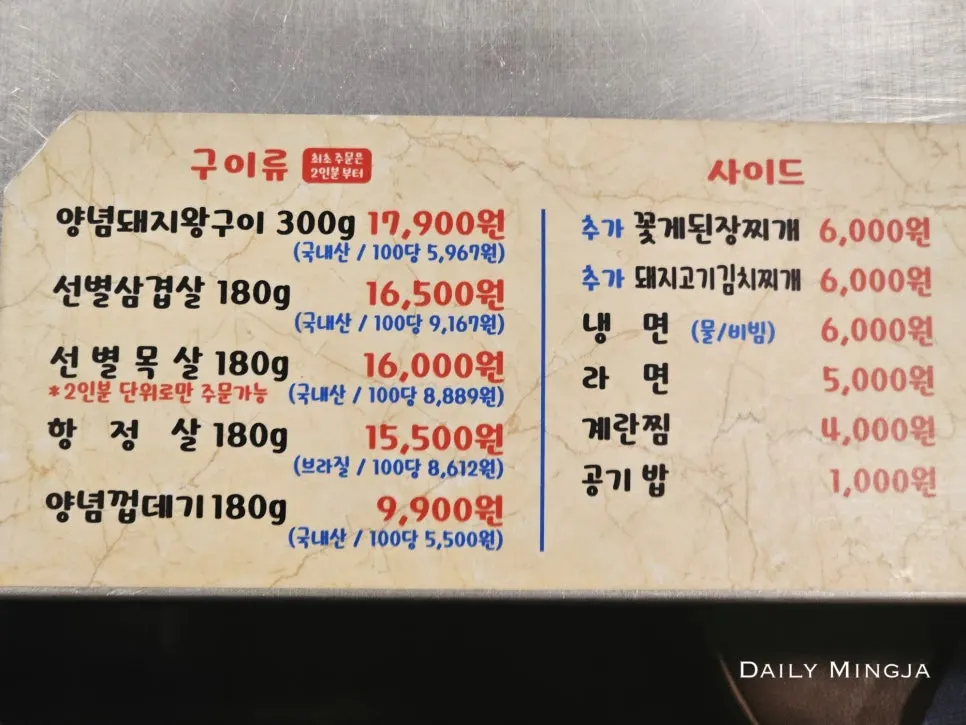 구이류 최초 주문은
2인분 부터
양념돼지왕구이 300g 17,900원
(국내산 / 100당 5,967원)
선별삼겹살 180g 16,500원
(국내산 / 100당 9,167원)
선별목살 180g 16,000원
*2인분 단위로만 주문가능 (국내산 / 100당 8,889원)
항정살 180g 15,500원
(브라질 / 100당 8,612원)
양념껍데기 180g 9,900원
(국내산 / 100당 5,500원)
사이드
추가 꽃게된장찌개 6,000원
추가 돼지고기김치찌개 6,000원
냉면 (물/비빔) 6,000원
라면 5,000원
계란찜 4,000원
공기밥 1,000원
DAILY MINGJA